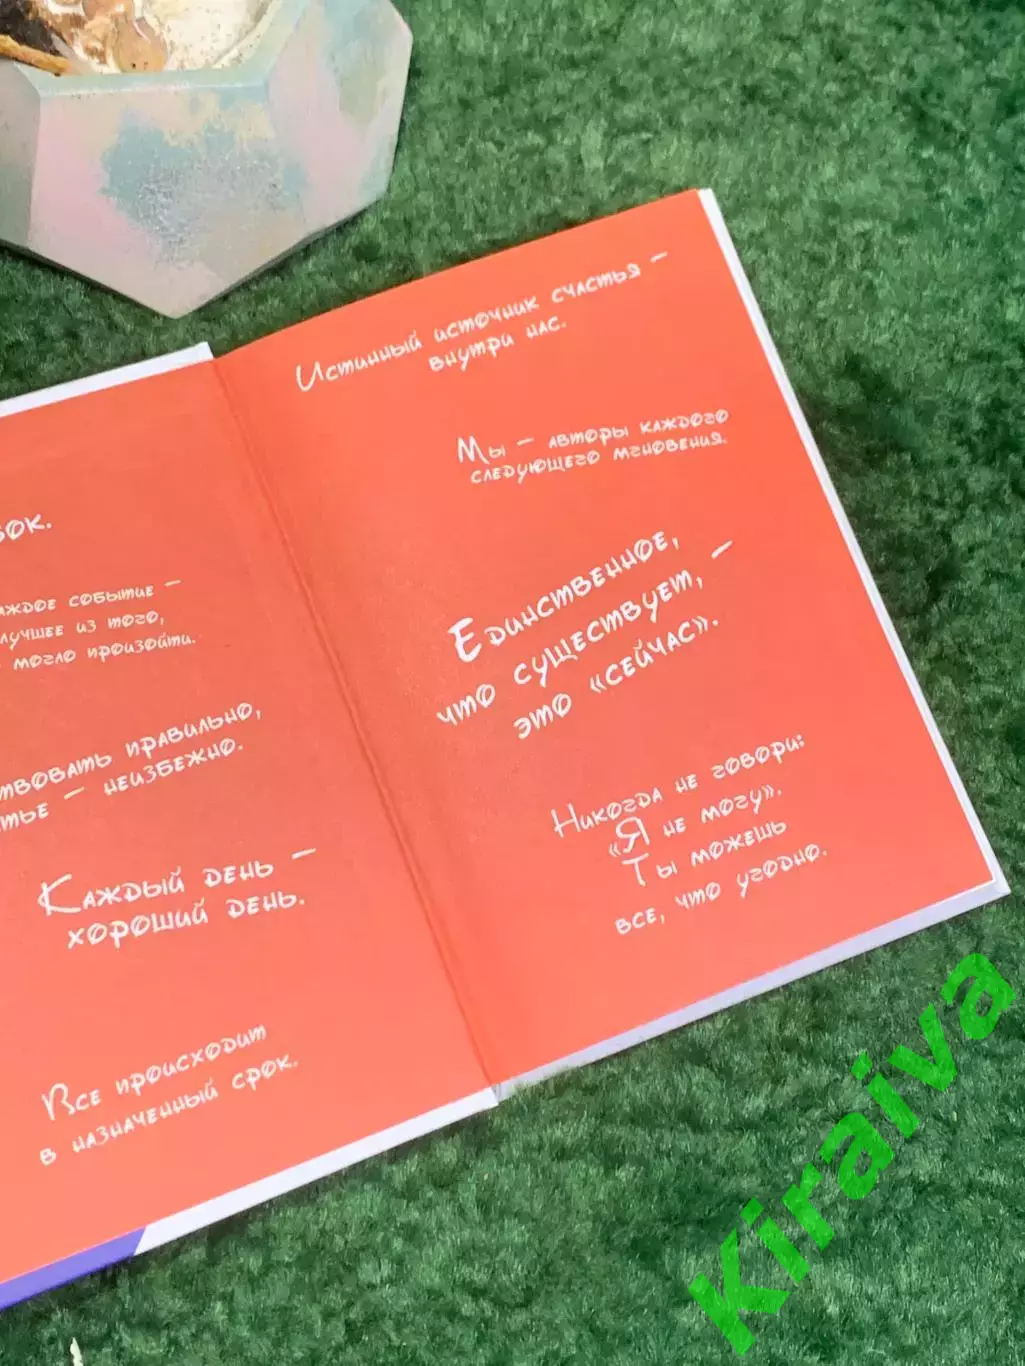 каждое событие –
лучшее из того,
могло произойти.
правильно,
– неизбежно.
Каждый день –
хороший день.
Все происходит
в назначенный срок.
Истинный источник счастья –
внутри нас.
Мы – авторы каждого
следующего мгновения.
Единственное,
что существует, –
это «сейчас».
Никогда не говори:
«Я не могу».
Ты можешь
все, что угодно.
Kiraiva